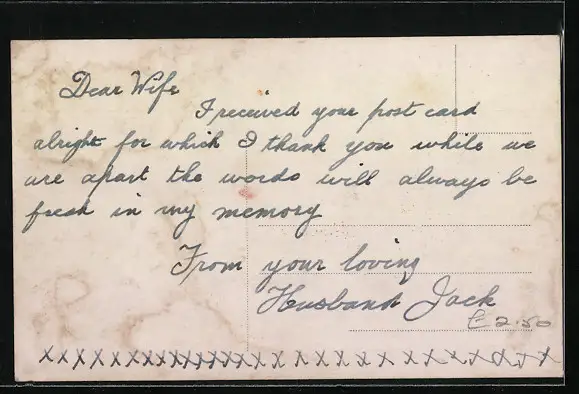 Dear Wife
I received your post card
alright for which I thank you while we
are apart the words will always be
fresh in my memory
From your loving
Husband Jack
£2.50
X X X X X X X X X X X X X X X X X X X X X X X X X X X X X